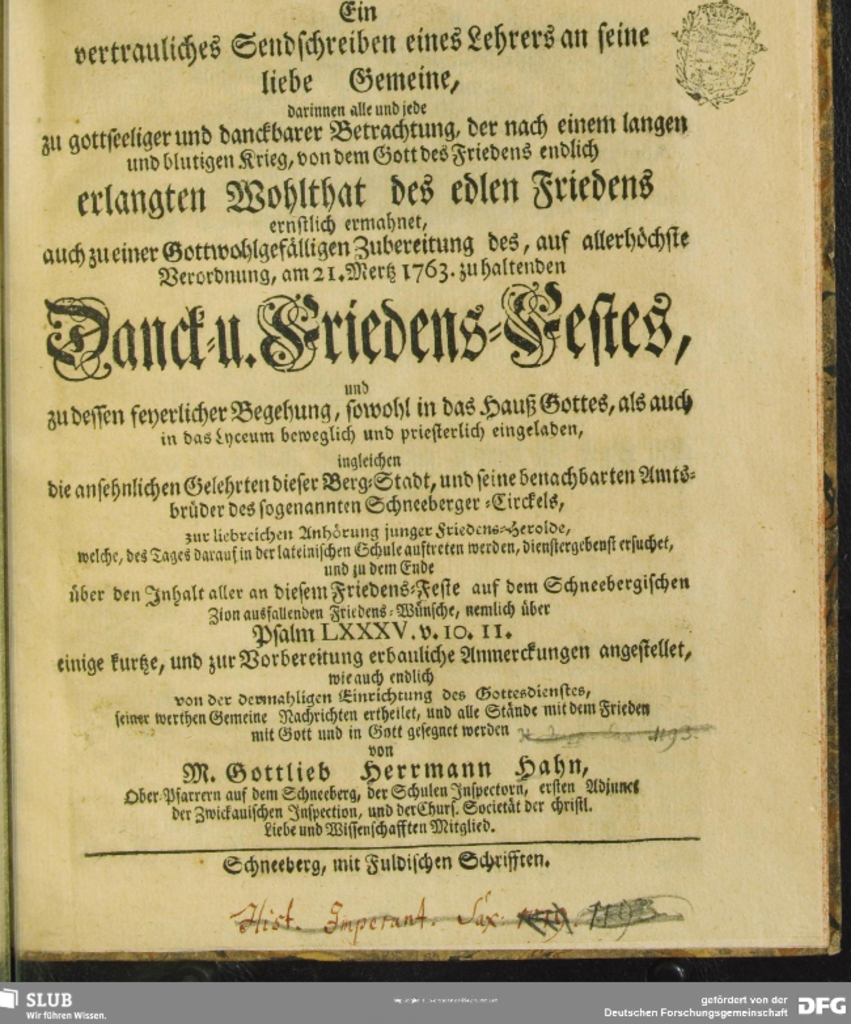 Ein
vertrauliches Sendschreiben eines Lehrers an seine
liebe Gemeine,
darinnen alle und jede
zu gottseeliger und danckbarer Betrachtung, der nach einem langen
und blutigen Krieg, von dem Gott des Friedens endlich
erlangten Wohlthat des edlen Friedens
ernstlich ermahnet,
auch zu einer Gottwohlgefälligen Zubereitung des, auf allerhöchste
Verordnung, am 21. Mertz 1763. zu haltenden
Danck- u. Friedens-Festes,
und
zu dessen feyerlicher Begehung, sowohl in das Hauß Gottes, als auch
in das Lyceum beweglich und priesterlich eingeladen,
ingleichen
die ansehnlichen Gelehrten dieser Berg-Stadt, und seine benachbarten Amts-
brüder des sogenannten Schneeberger-Circkels,
zur liebreichen Anhörung junger Friedens-Herolde,
welche, des Tages darauf in der lateinischen Schule auftreten werden, dienstergebenst ersuchet,
und zu dem Ende
über den Inhalt aller an diesem Friedens-Feste auf dem Schneebergischen
Zion ausfallenden Friedens-Wünsche, nemlich über
Psalm LXXXV. v. 10. 11.
einige kurtze, und zur Vorbereitung erbauliche Anmerckungen angestellet,
wie auch endlich
von der dermahligen Einrichtung des Gottesdienstes,
seiner werthen Gemeine Nachrichten ertheilet, und alle Stände mit dem Frieden
mit Gott und in Gott gesegnet werden
1193.
von
M. Gottlieb Herrmann Hahn,
Ober-Pfarrern auf dem Schneeberg, der Schulen Inspectorn, ersten Adjunct
der Zwickauischen Inspection, und der Churf. Societät der christl.
Liebe und Wissenschafften Mitglied.
Schneeberg, mit Fuldischen Schrifften.
Hist. Imperant. Sax. 1193
SLUB
Wir führen Wissen.
gefördert von der
Deutschen Forschungsgemeinschaft
DFG